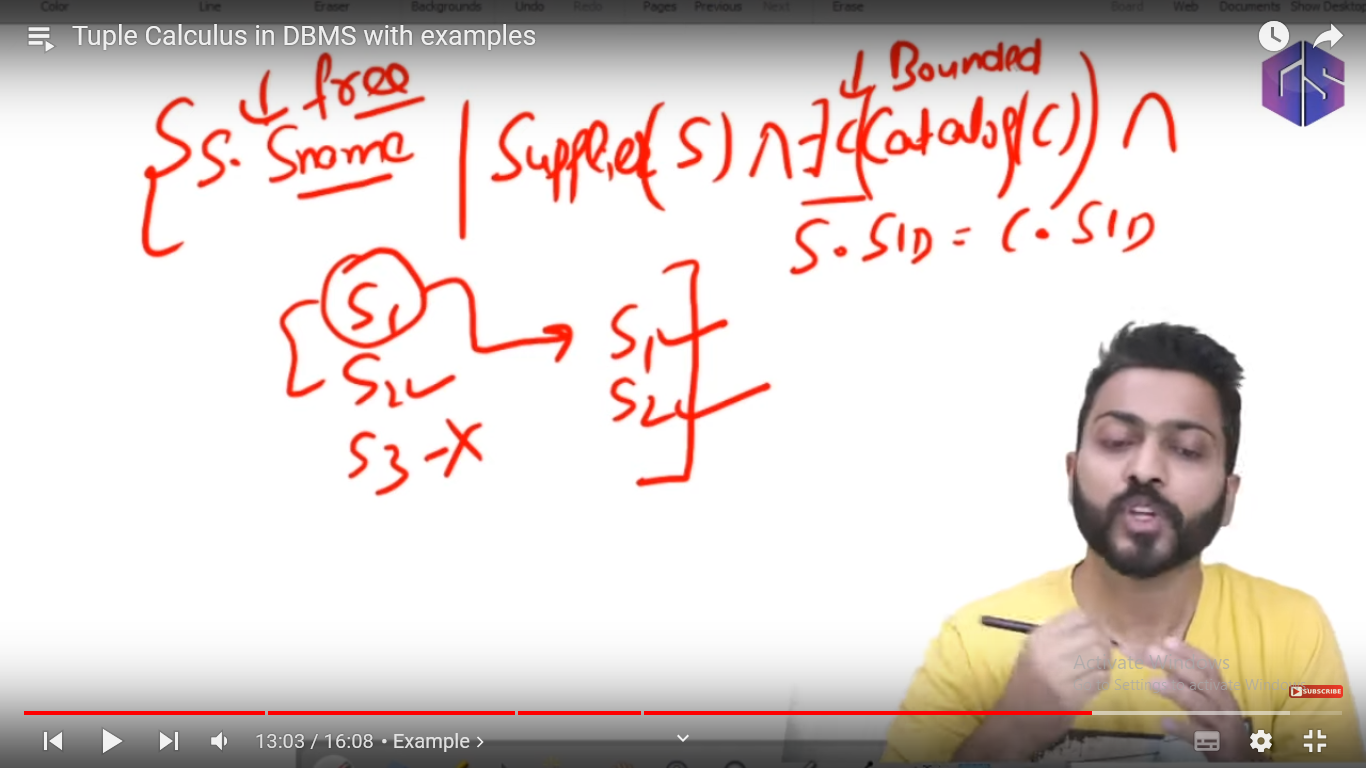 Color Line Eraser Backgrounds Undo Redo Pages Previous Next Erase Board Web Documents Show Desktop
Tuple Calculus in DBMS with examples
↓ free ↓ Bounded
{S.Sname | Supplier(S) ∧ ∃c(Catalog(c)) ∧
S.SID = C.SID
S1 S1
S2 ✓ S2
S3 - X
Activate Windows
Go to Settings to activate Windows.
SUBSCRIBE
13:03 / 16:08 • Example >